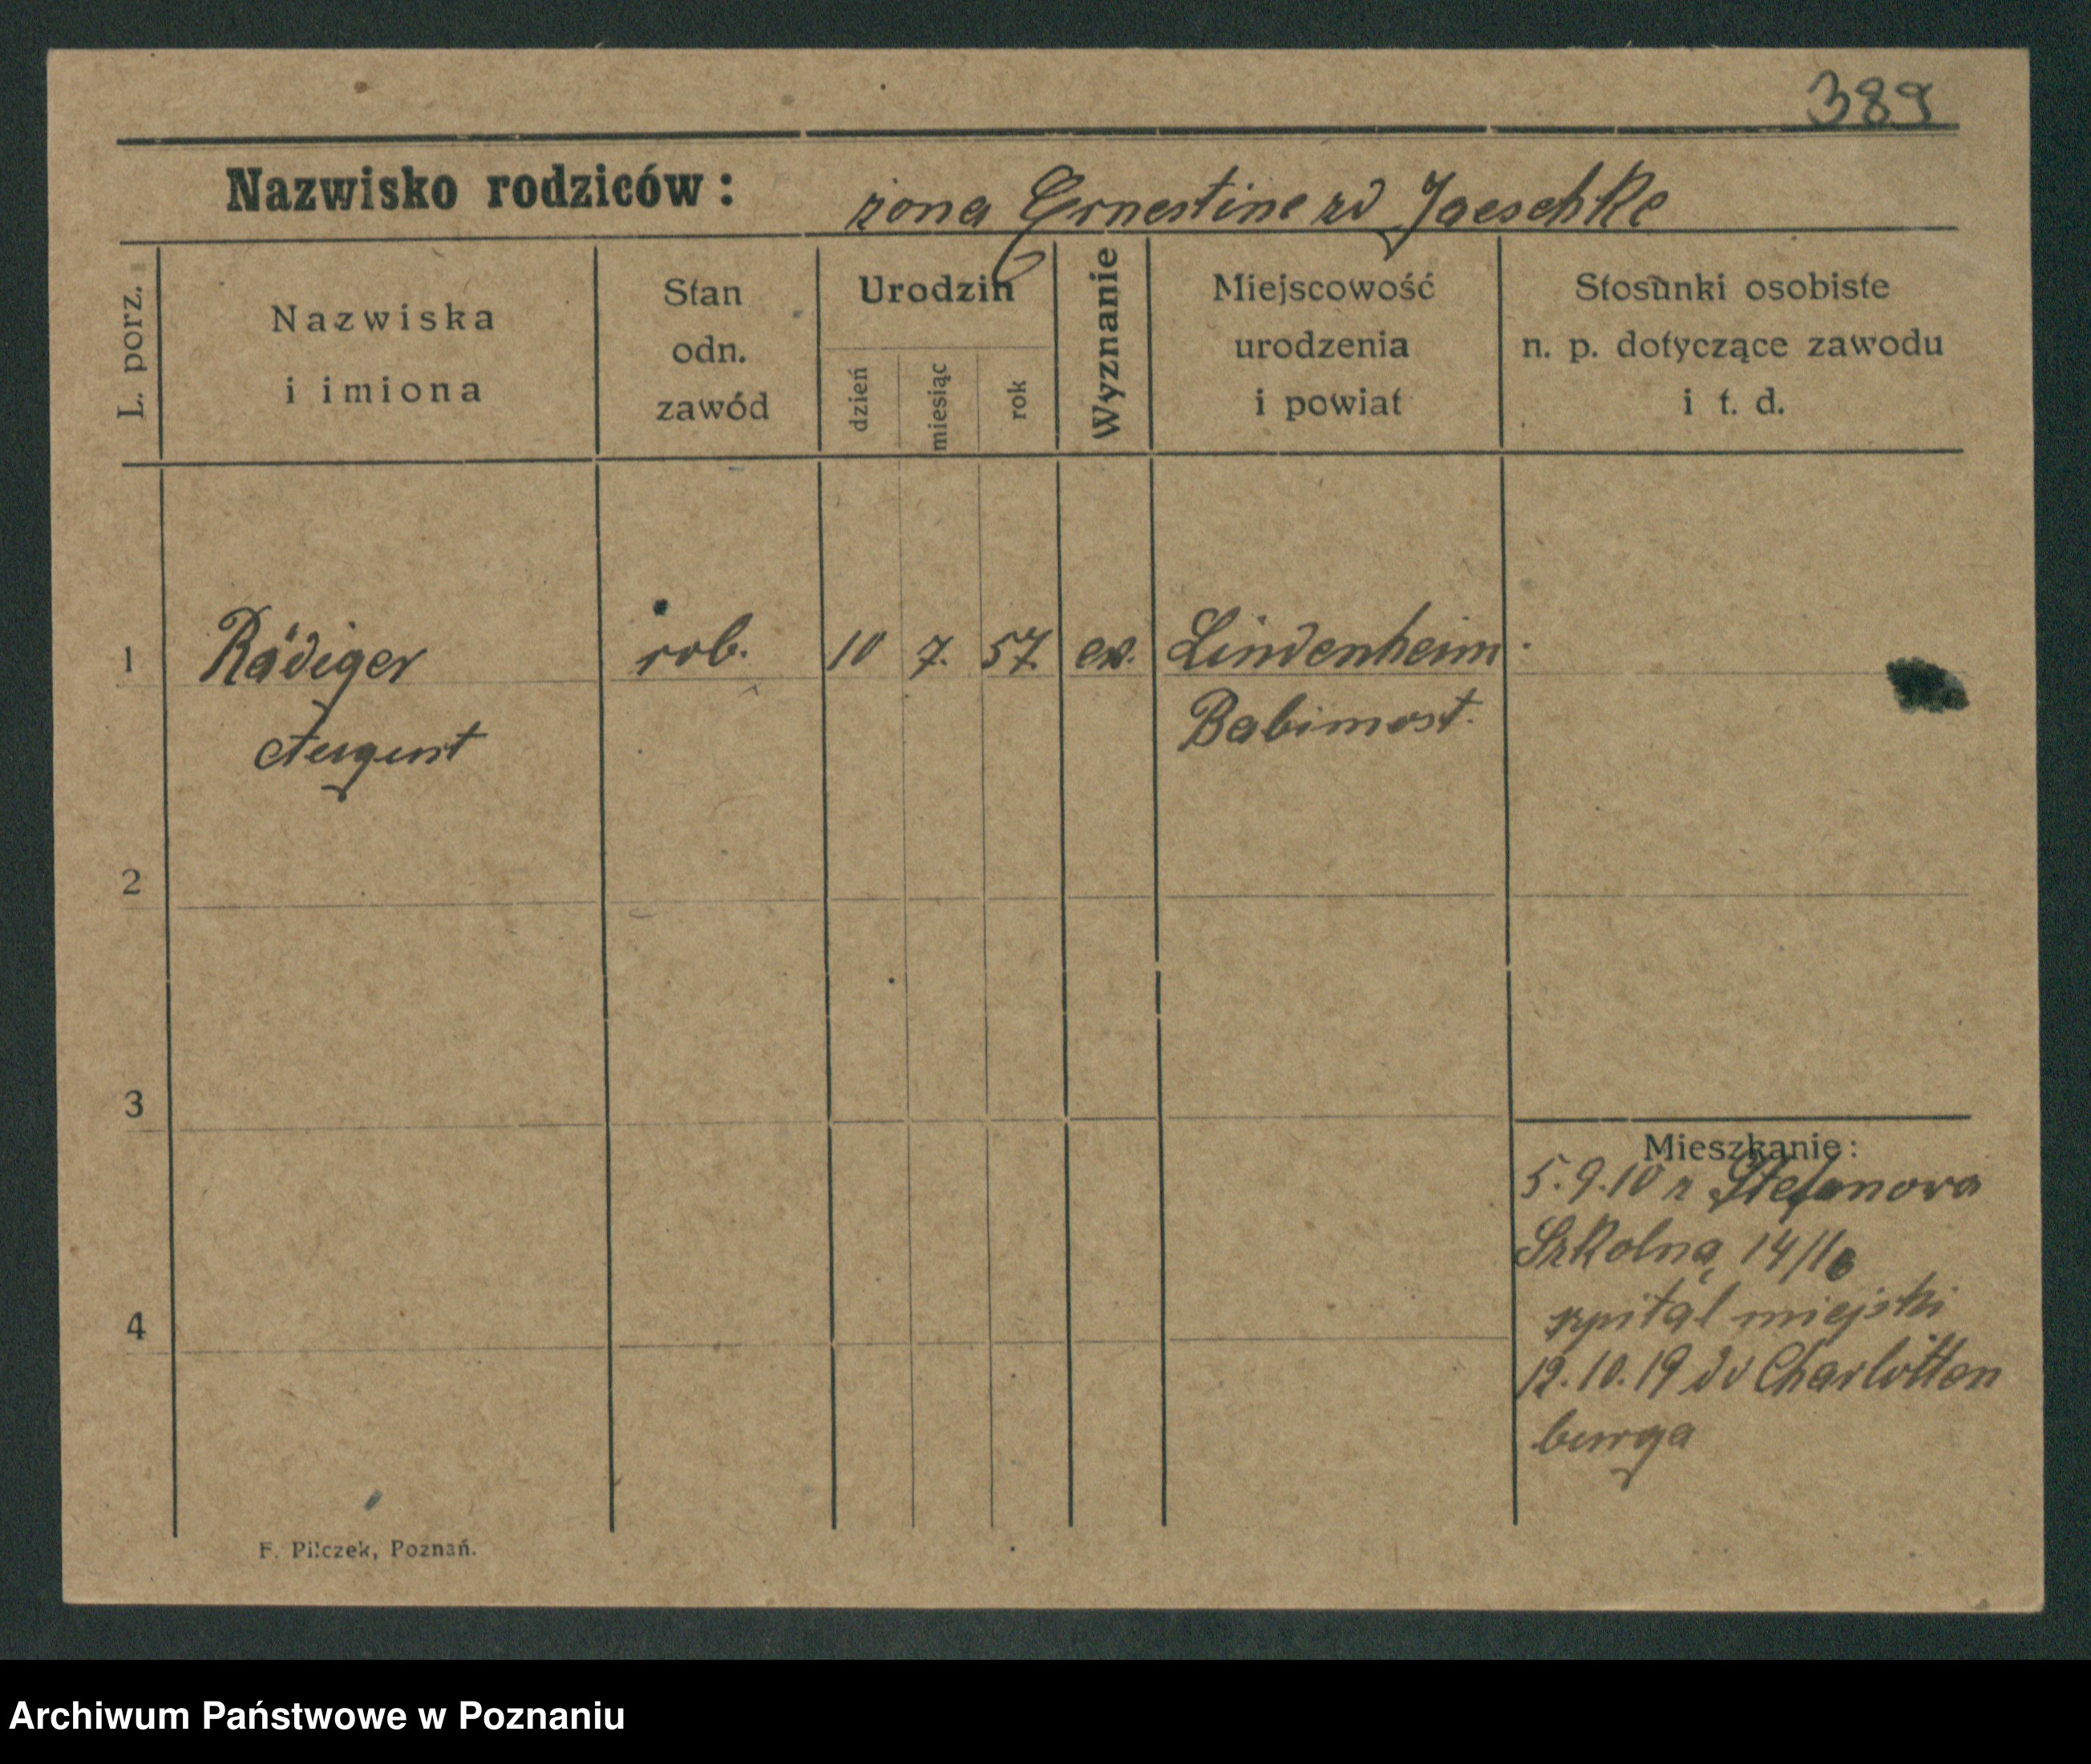 389
Nazwisko rodziców: żona Ernestine zd Jaeschke
L. porz.
Nazwiska i imiona
Stan odn. zawód
Urodzin
dzień
miesiąc
rok
Wyznanie
Miejscowość urodzenia i powiat
Stosunki osobiste n. p. dotyczące zawodu i t. d.
1 Rädiger rob. 10 7. 57 ew. Lindenheim
August Babimost.
2
3
4
Mieszkanie:
5.9.10 z Stefanowa
Szkolna 14/16
szpital miejski
12.10.19 do Charlotten
burga
F. Pilczek, Poznań.
Archiwum Państwowe w Poznaniu